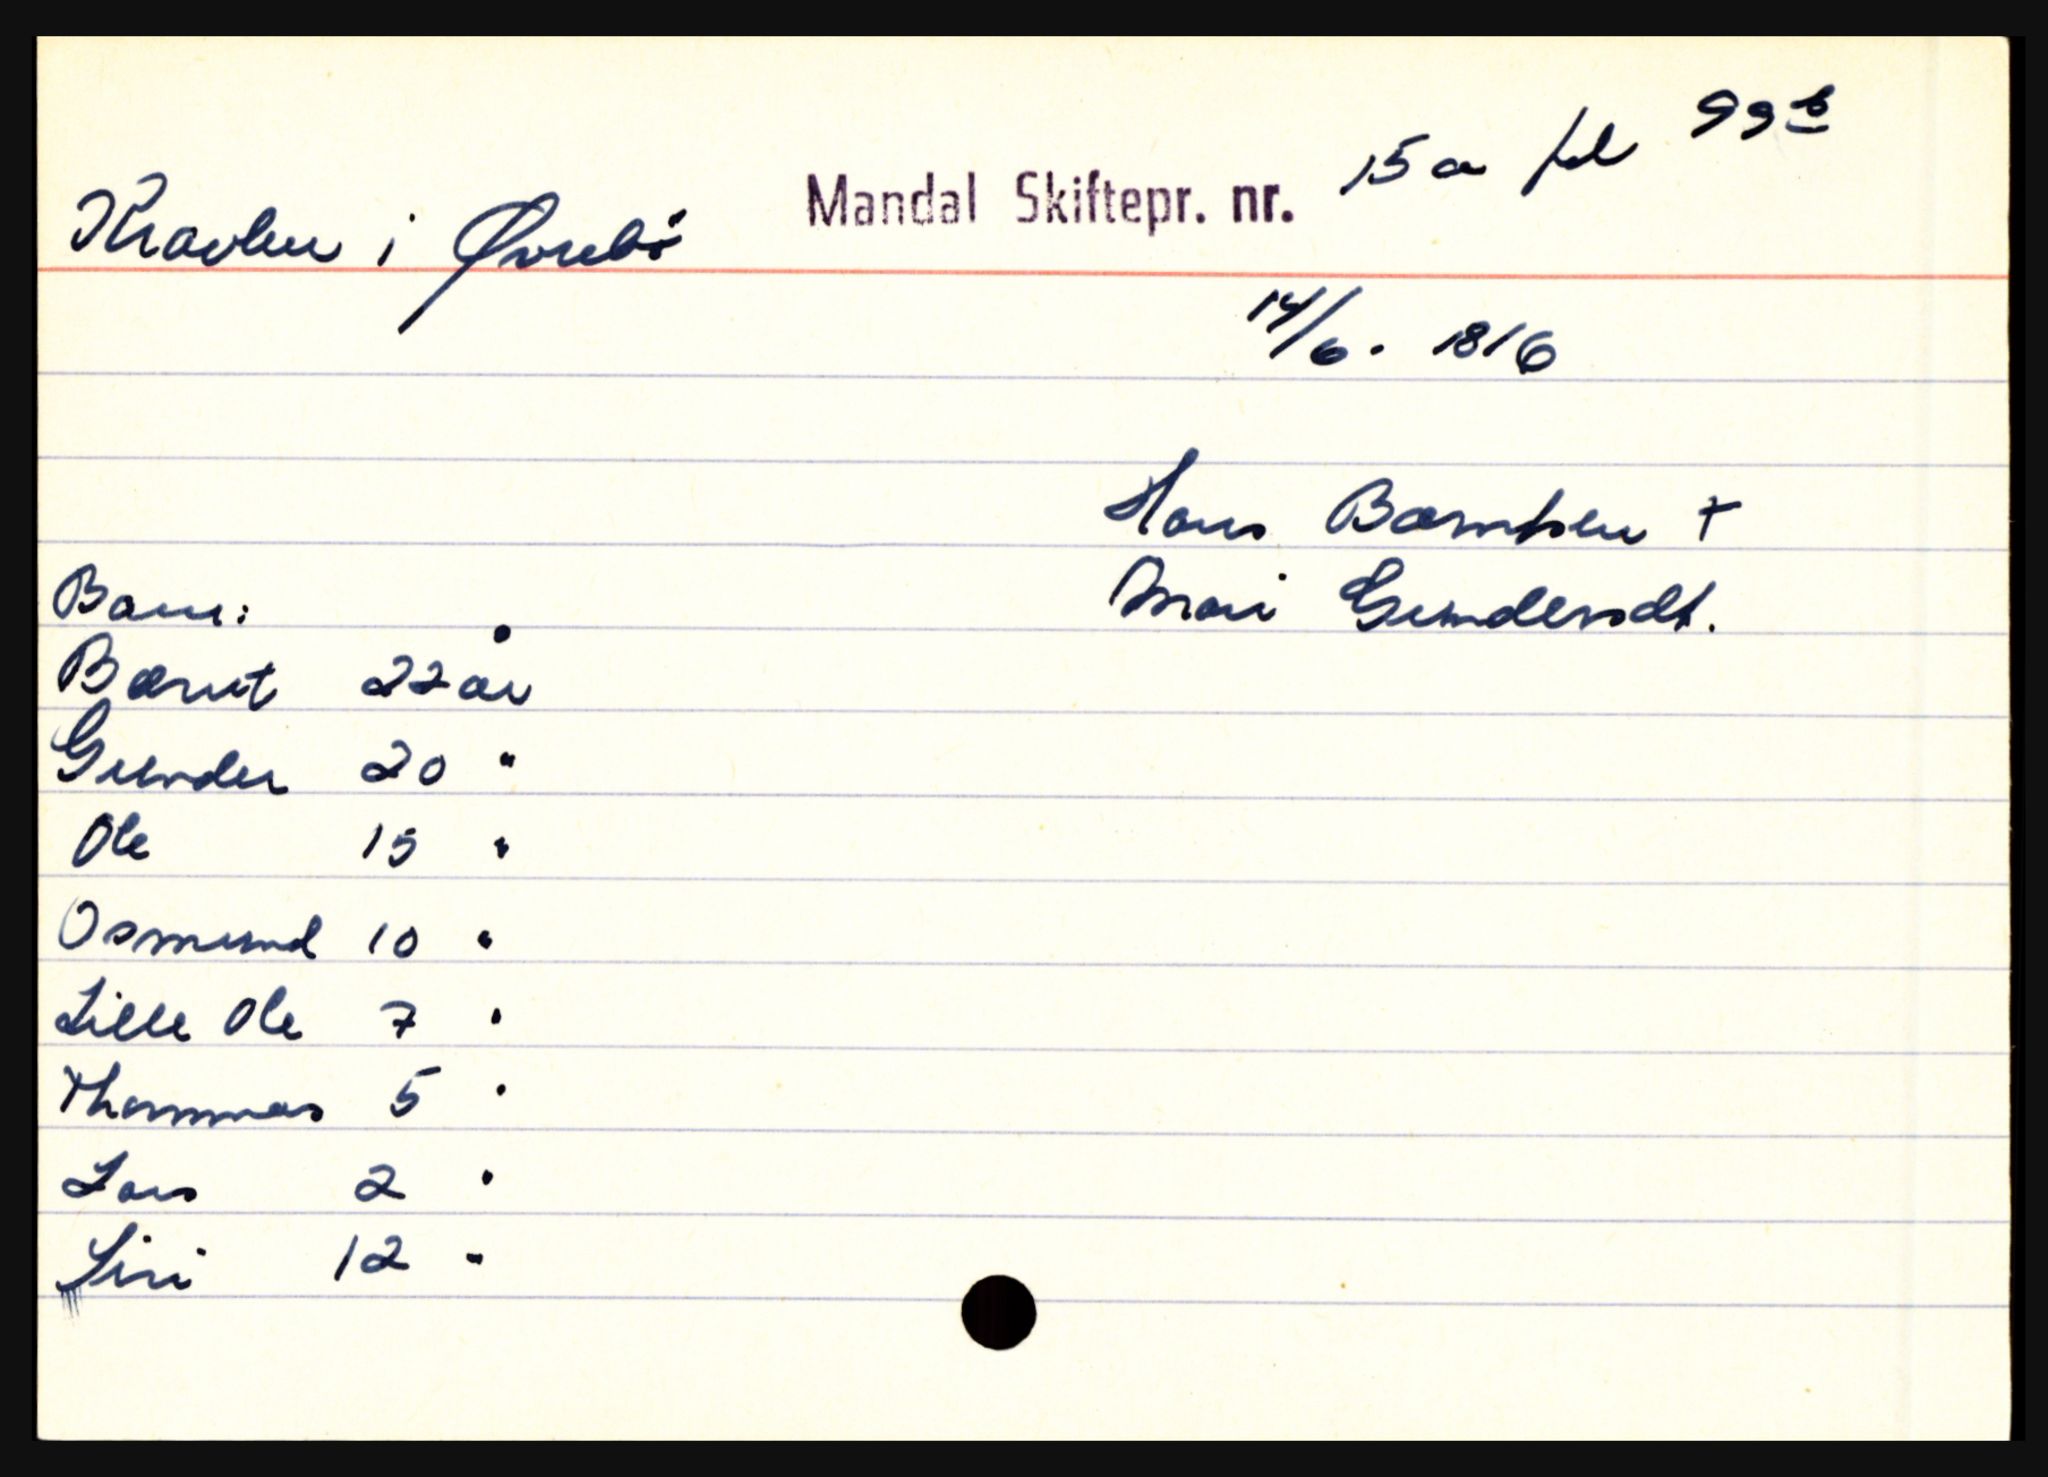 Mandal Skiftepr. nr. 15 a fol 99 b
Kravlen i Øvrebø
14/6. 1816
Hans Bærntsen +
Mari Gundersdt.
Barn:
Bærnt 22 år
Gunder 20 "
Ole 15 "
Osmund 10 "
Lille Ole 7 "
Thommas 5 "
Lars 2 "
Siri 12 "